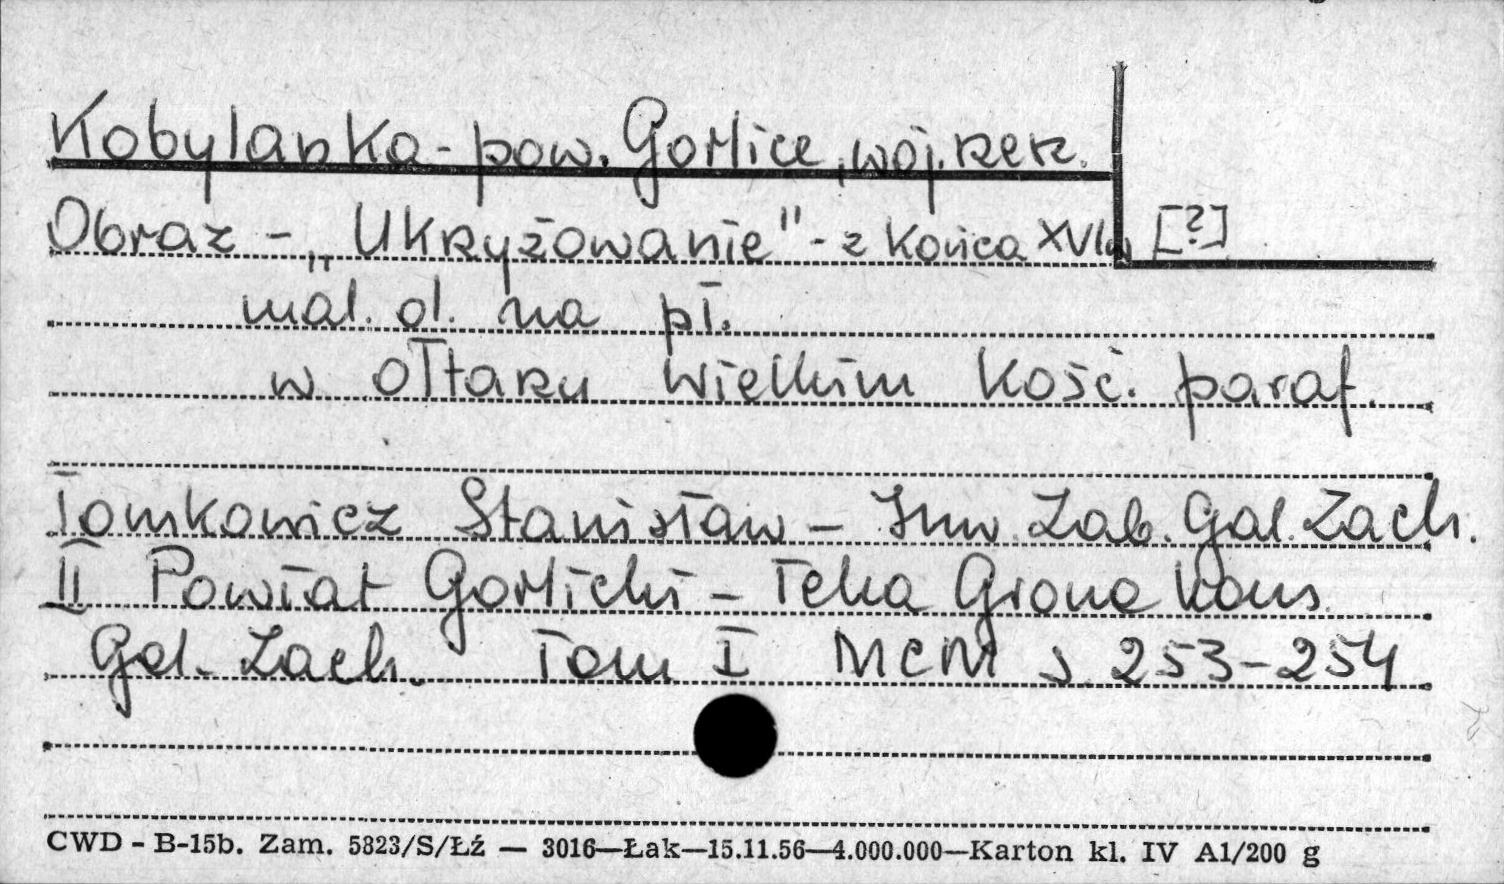 Kobylanka - pow. Gorlice, woj. rzesz.
Obraz - „Ukrzyżowanie" - z końca XVI w [?]
mal. ol. na pł.
w ołtarzu wielkim kość. paraf.
Tomkowicz Stanisław - Inw. Zab. Gal. Zach.
II Powiat Gorlicki - Teka Grona Kons.
Gal. Zach. Tom I MCM s. 253-254
CWD - B-15b. Zam. 5823/S/Łź — 3016—Łak—15.11.56—4.000.000—Karton kl. IV A1/200 g